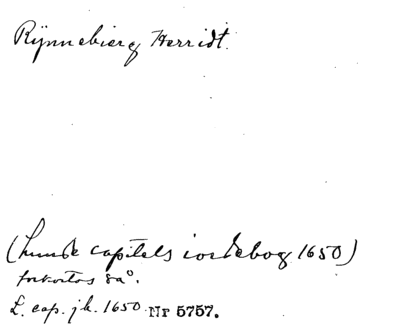 Rÿnnebierg Herridt.
(Lunde capitels iordebog 1650)
forkortas sao.
L. cap. j.b. 1650 Nr 5757.